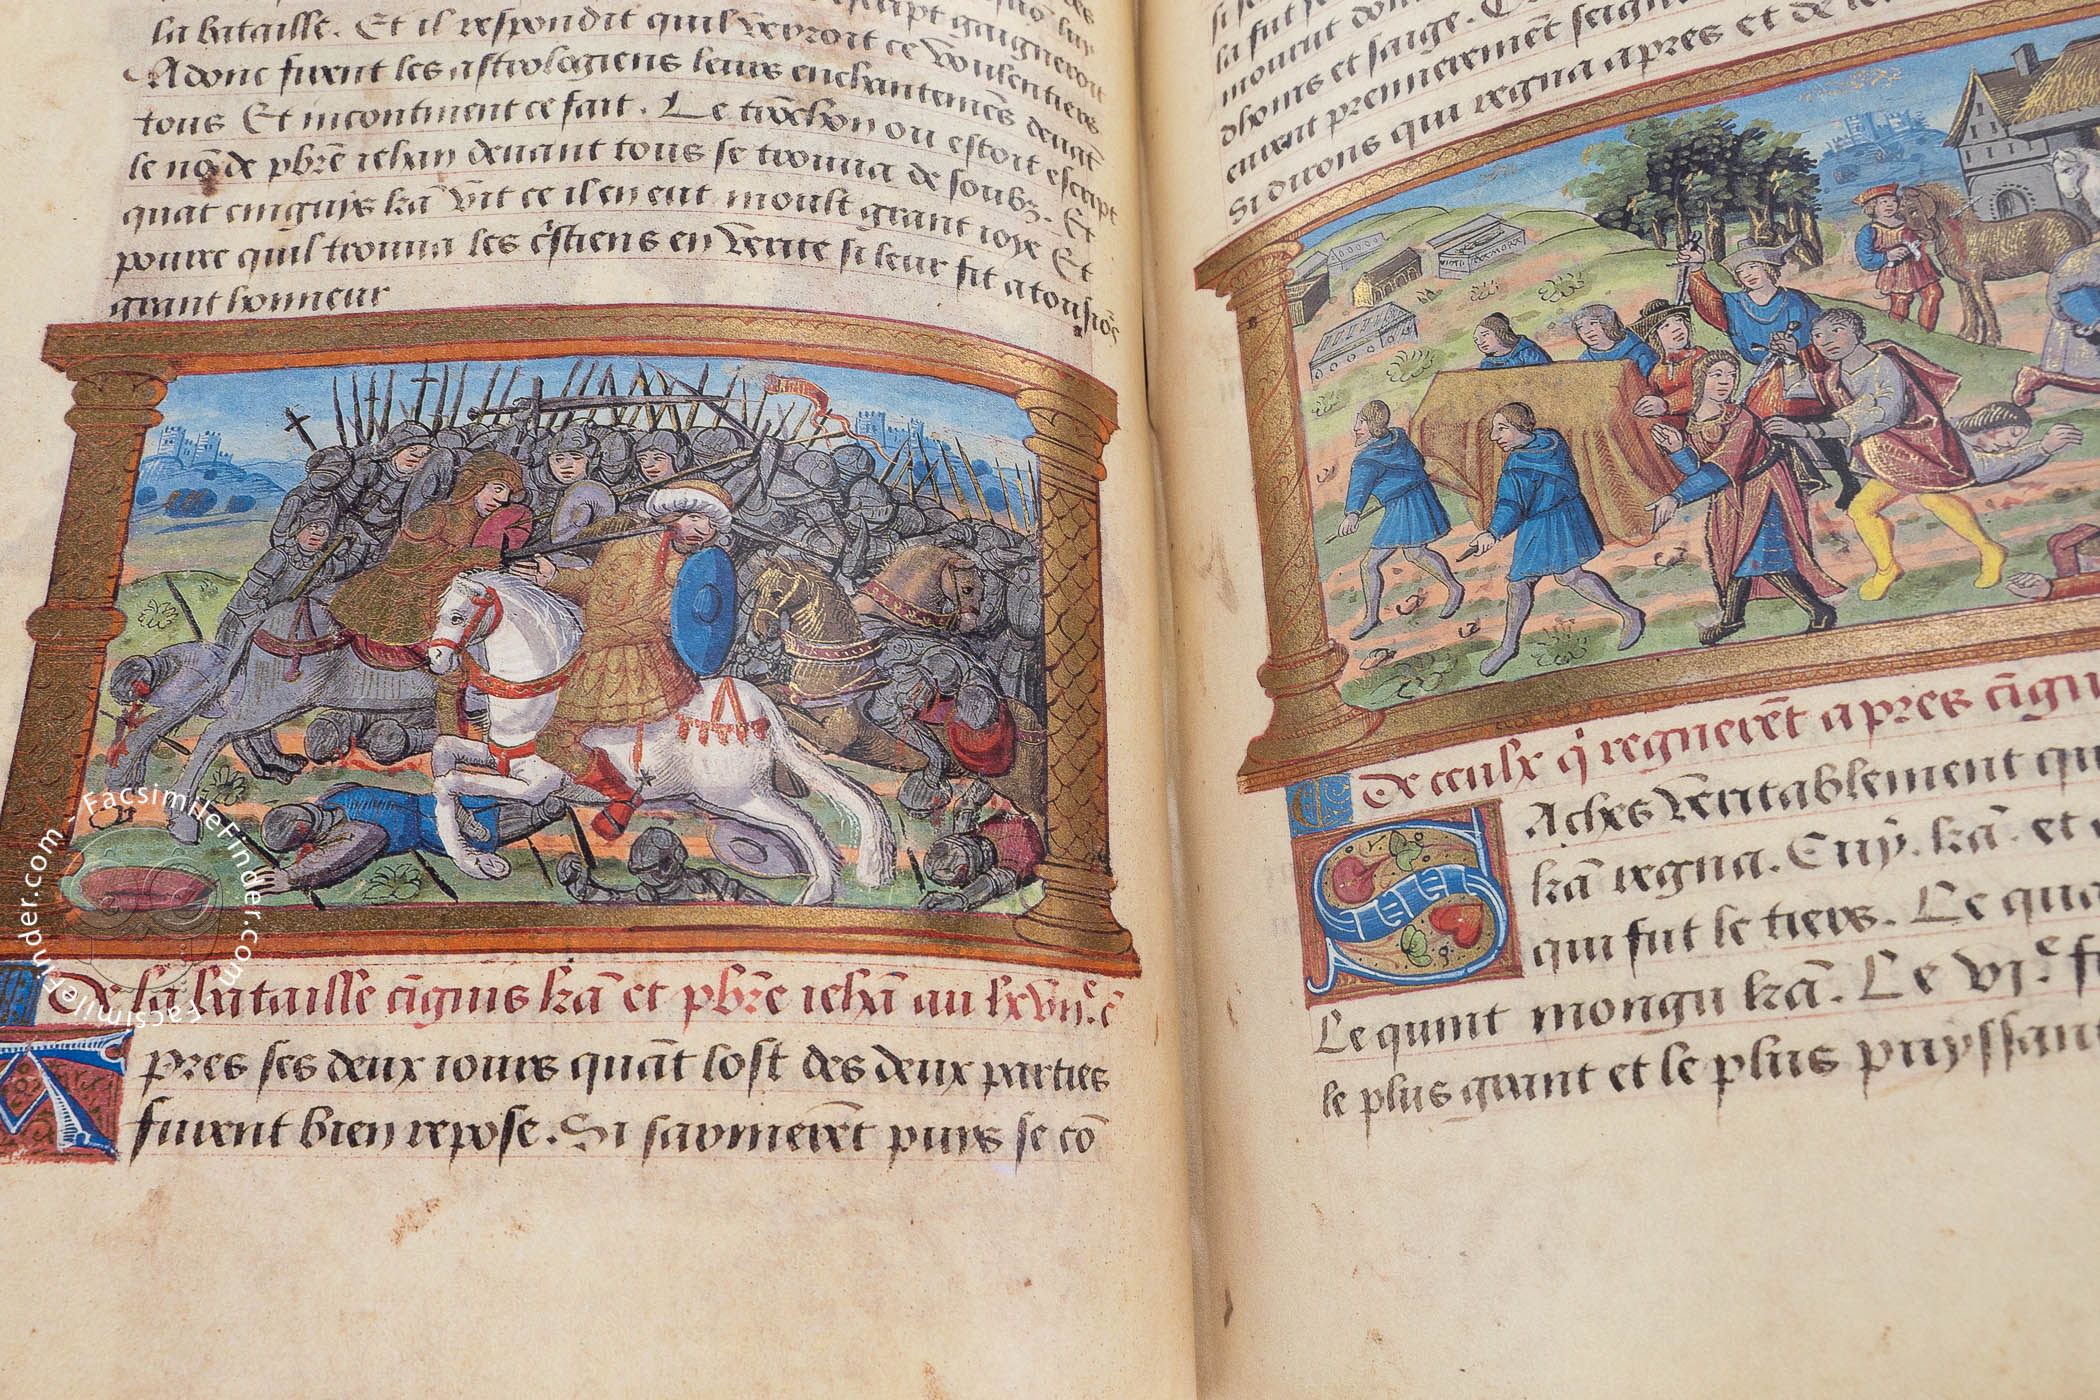 la bataille. Et il respondit quil verroit ce voulentiers
Adonc firent les astrologiens leurs enchantemēs deuāt
tous Et incontinent ce fait. Le trōchon ou estoit escript
le nō de pbrē iehan deuant tous se trouua de soubz. Et
quāt cinguys kā vit ce il en eut moult grant ioye Et
pource quil trouua les cr̄stiens en verite si leur fit a tousiōs
grant honneur
De la bataille cīguis kā et pbrē iehā au lxviie. c̄
Apres ses deux iours quāt lost des deux parties
furent bien repose. Si sarmerēt puis se cō
mourut
dhoms et saige.
eurent premierement
Si dirons qui regna apres et de
De ceulx q̄ regnerēt apres cīgu
Saches veritablement qu
kā regna. Cuy. kā. et
qui fut le tiers. Le qua
Le quint mongu kā. Le vie. f
le plus grant et le plus puyssan
FacsimileFinder.com - FacsimileFinder.com